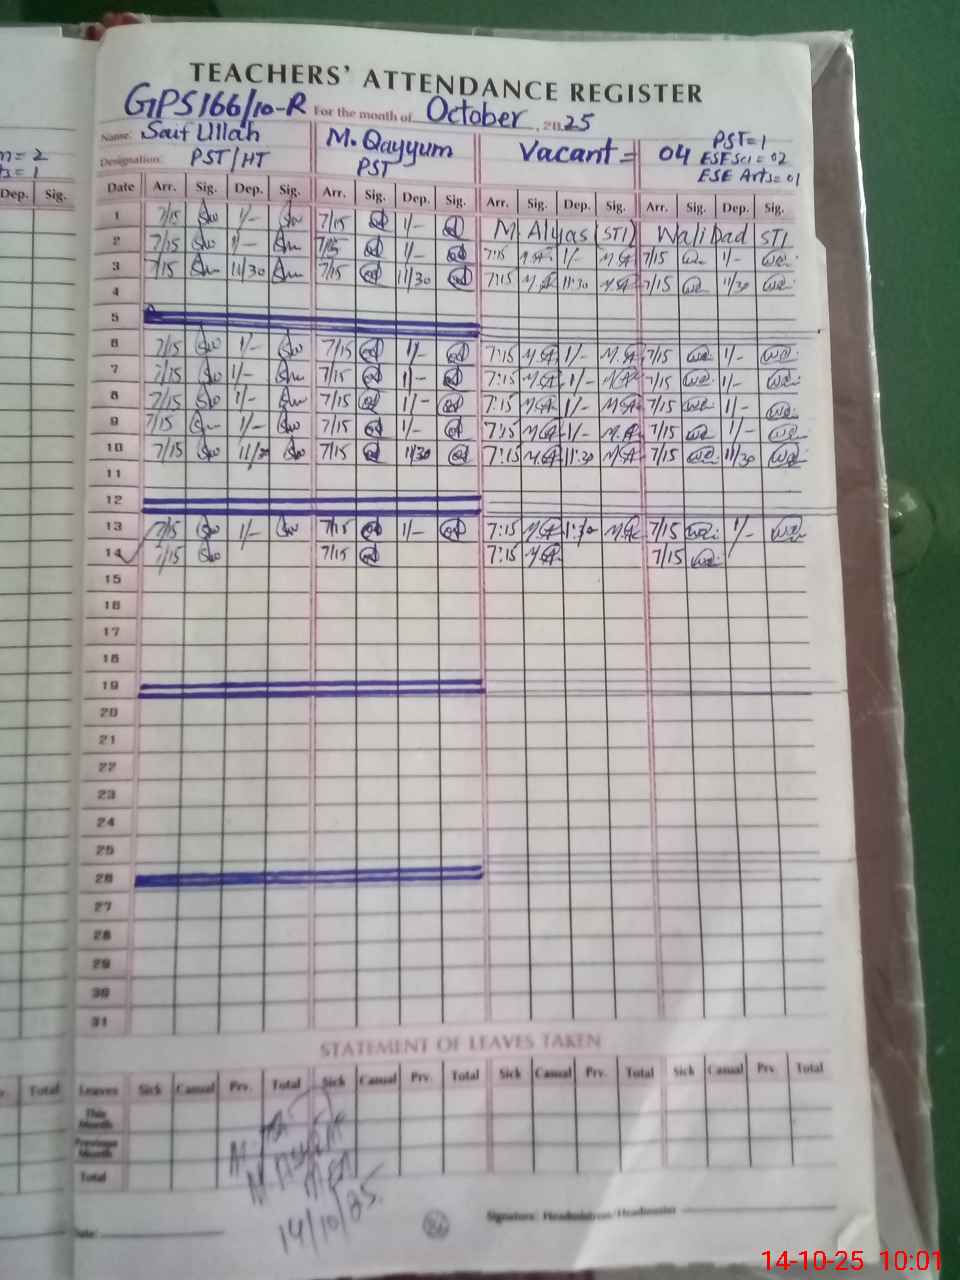 TEACHERS' ATTENDANCE REGISTER
GPS 166/10-R For the month of October, 2025
Name: Saif Ullah M. Qayyum Vacant = 04 PST=1
Designation: PST/HT PST ESE Sci = 02
ESE Arts = 01
Dep. Sig.
Date Arr. Sig. Dep. Sig. Arr. Sig. Dep. Sig. Arr. Sig. Dep. Sig. Arr. Sig. Dep. Sig.
1 7/15 1/- 7/15 1/- M Alyas (STI) Wali Dad STI
2 7/15 1/- 7/15 1/- 7:15 M.A 1/- M.A 7/15 1/-
3 7/15 11/30 7/15 11/30 7:15 M.A 11:30 M.A 7/15 11/30
4
5
6 7/15 1/- 7/15 1/- 7:15 M.A 1/- M.A 7/15 1/-
7 7/15 1/- 7/15 1/- 7:15 M.A 1/- M.A 7/15 1/-
8 7/15 1/- 7/15 1/- 7:15 M.A 1/- M.A 7/15 1/-
9 7/15 1/- 7/15 1/- 7:15 M.A 1/- M.A 7/15 1/-
10 7/15 11/30 7/15 11/30 7:15 M.A 11:30 M.A 7/15 11/30
11
12
13 7/15 1/- 7/15 1/- 7:15 M.A M.A 7/15 1/-
14 7/15 7/15 7:15 M.A 7/15
15
16
17
18
19
20
21
22
23
24
25
26
27
28
29
30
31
STATEMENT OF LEAVES TAKEN
Total Leaves Sick Casual Prv. Total Sick Casual Prv. Total Sick Casual Prv. Total Sick Casual Prv. Total
This Month
Previous Month
Total
14/10/25
Date: Signature: Headmistress/Headmaster
14-10-25 10:01